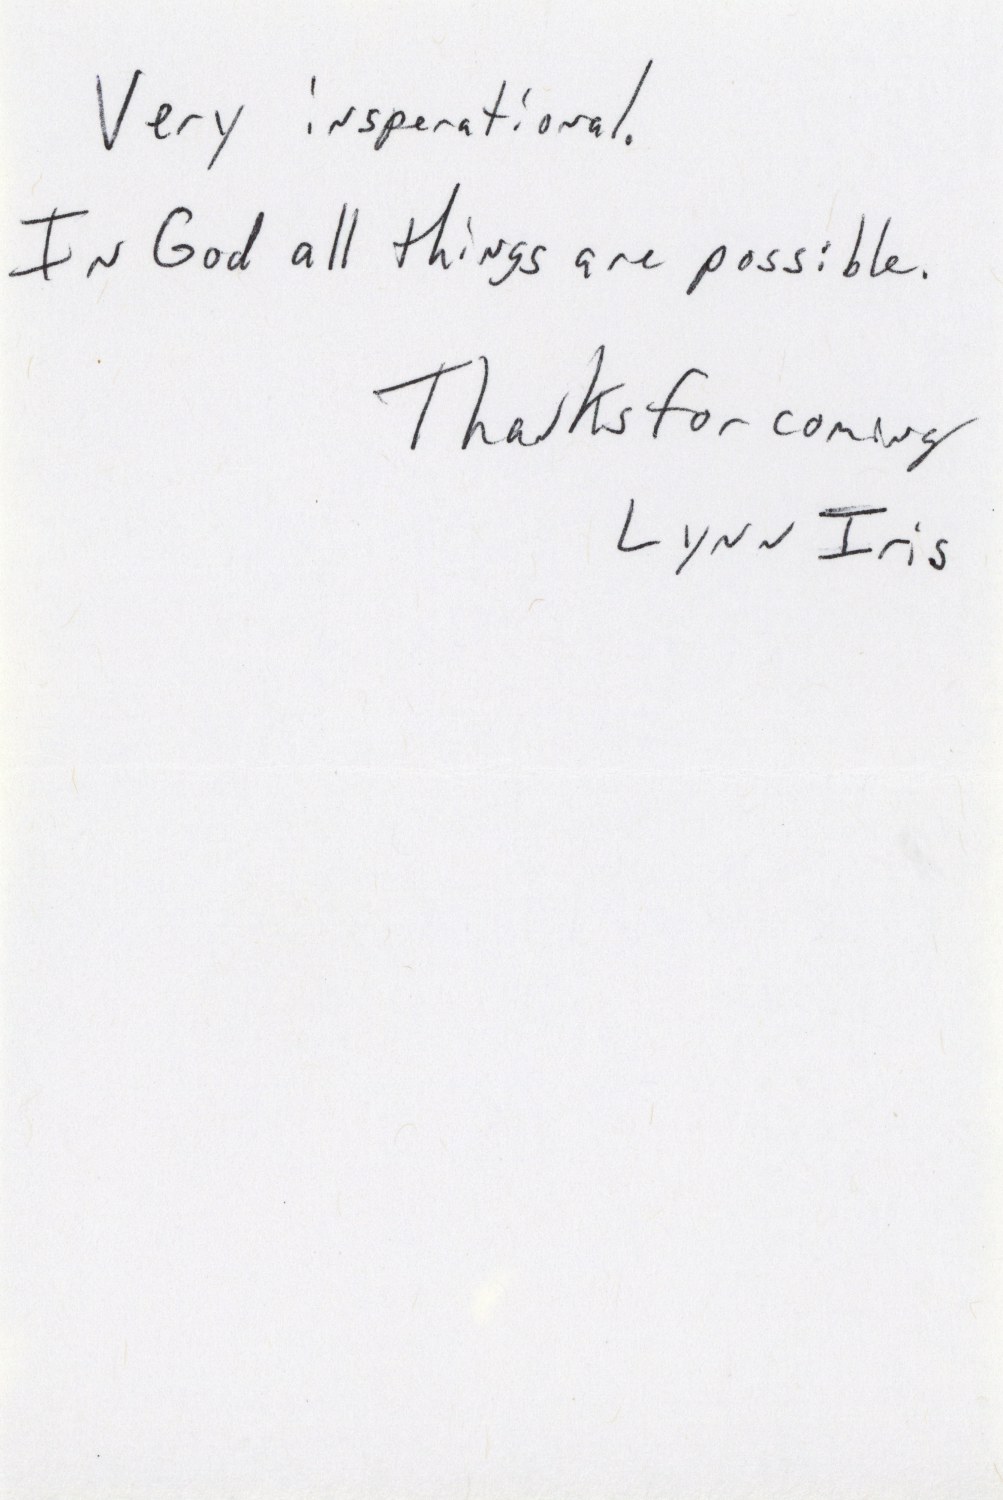 Very insperational.
In God all things are possible.
Thanks for coming
Lynn Iris